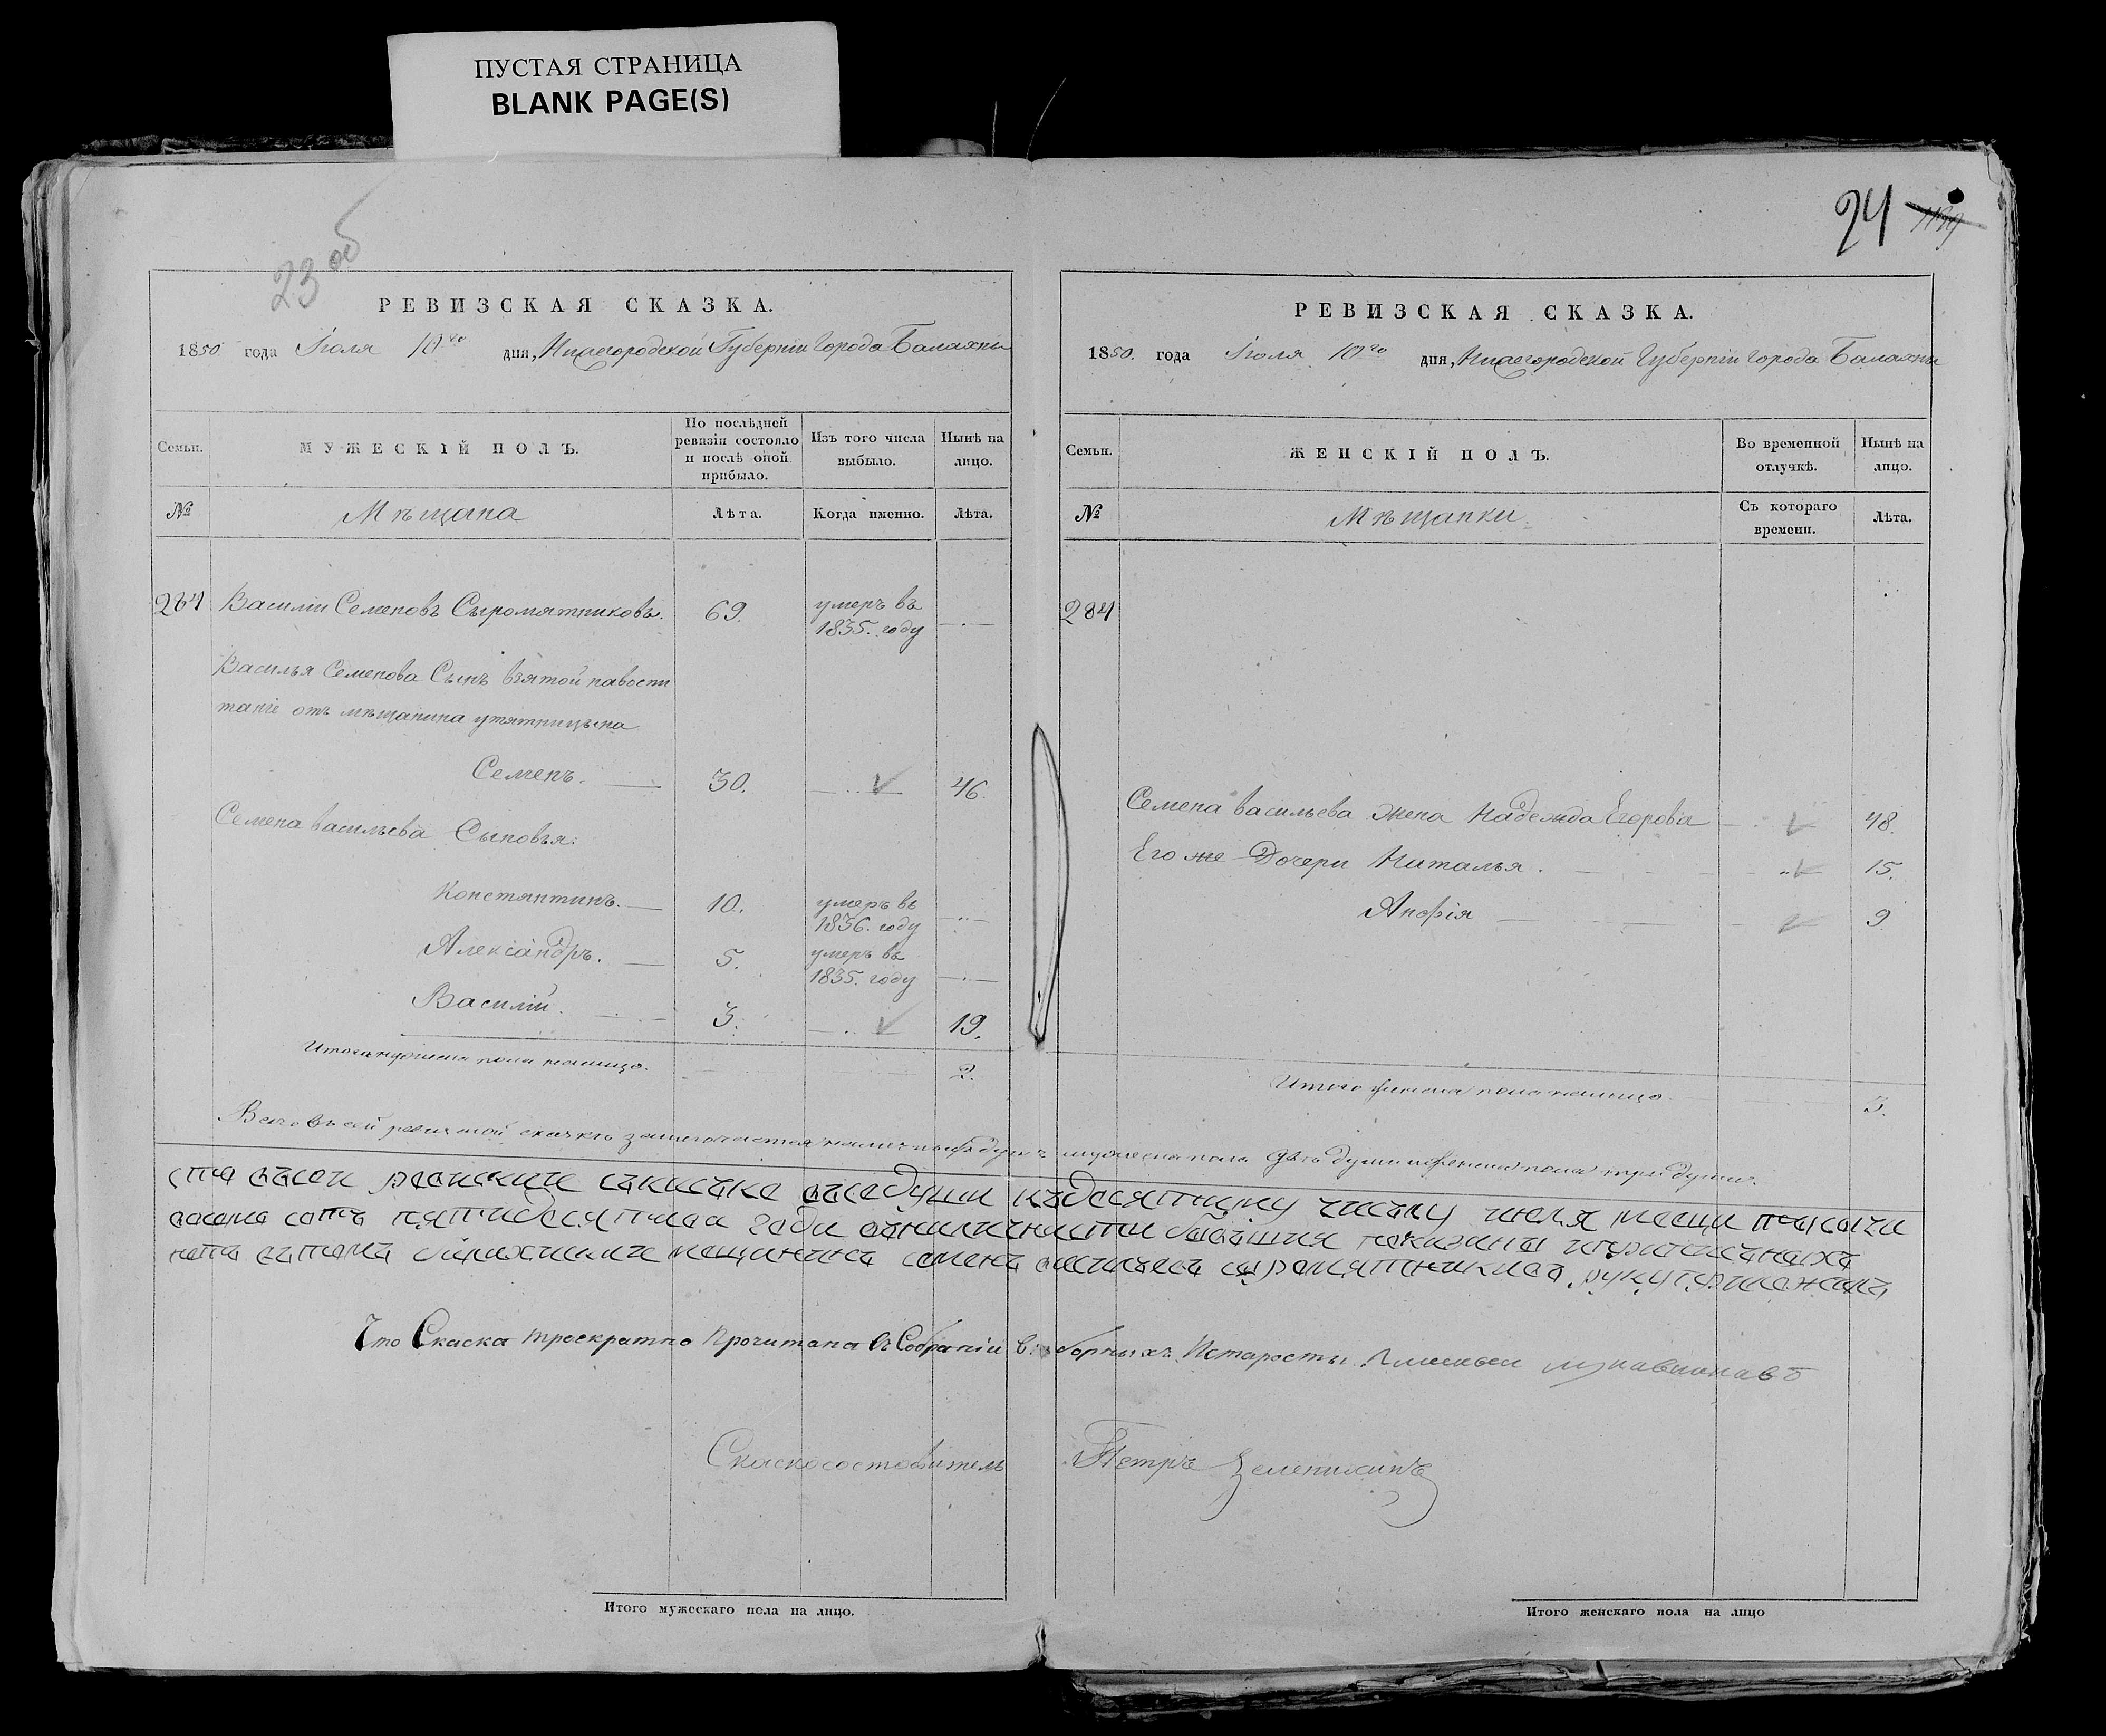 ПУСТАЯ СТРАНИЦА
BLANK PAGE(S)
23 об
РЕВИЗСКАЯ СКАЗКА.
1850 года Іюля 10го дня, Нижегородской Губерніи Города Балахны
Семьи. МУЖЕСКІЙ ПОЛЪ. По послѣдней ревизіи состояло и послѣ оной прибыло. Изъ того числа выбыло. Нынѣ на лицо.
№ Мѣщана Лѣта. Когда именно. Лѣта.
284 Василіи Семеновъ Сыромятниковъ. 69. умеръ въ 1835. году
Василья Семенова Сынъ взятой навоспи
таніе отъ мѣщанина утятницына
Семенъ. 30. 46.
Семена васильева Сыновья:
Константинъ. 10. умеръ въ 1836. году
Александръ. 5. умеръ въ 1835. году
Василій. 3. 19.
Итого мужеска пола налицо. 2.
24
РЕВИЗСКАЯ СКАЗКА.
1850. года Іюля 10го дня, Нижегородской Губерніи Города Балахны
Семьи. ЖЕНСКІЙ ПОЛЪ. Во временной отлучкѣ. Нынѣ на лицо.
№ Мѣщанки. Съ котораго времени. Лѣта.
284
Семена васильева жена Надежда Егорова 48.
Его же Дочери Наталья. 15.
Анфія 9
Итого женска пола налицо 3.
Всего въ сей ревизской сказкѣ заключается наличныхъ душъ мужеска пола двѣ души и женска пола три души.
Что Скаска троекратно прочитана въ Собраніи выборныхъ. Истаросты
Скаскосоставитель Петръ Зеленихинъ
Итого мужескаго пола на лицо.
Итого женскаго пола на лицо